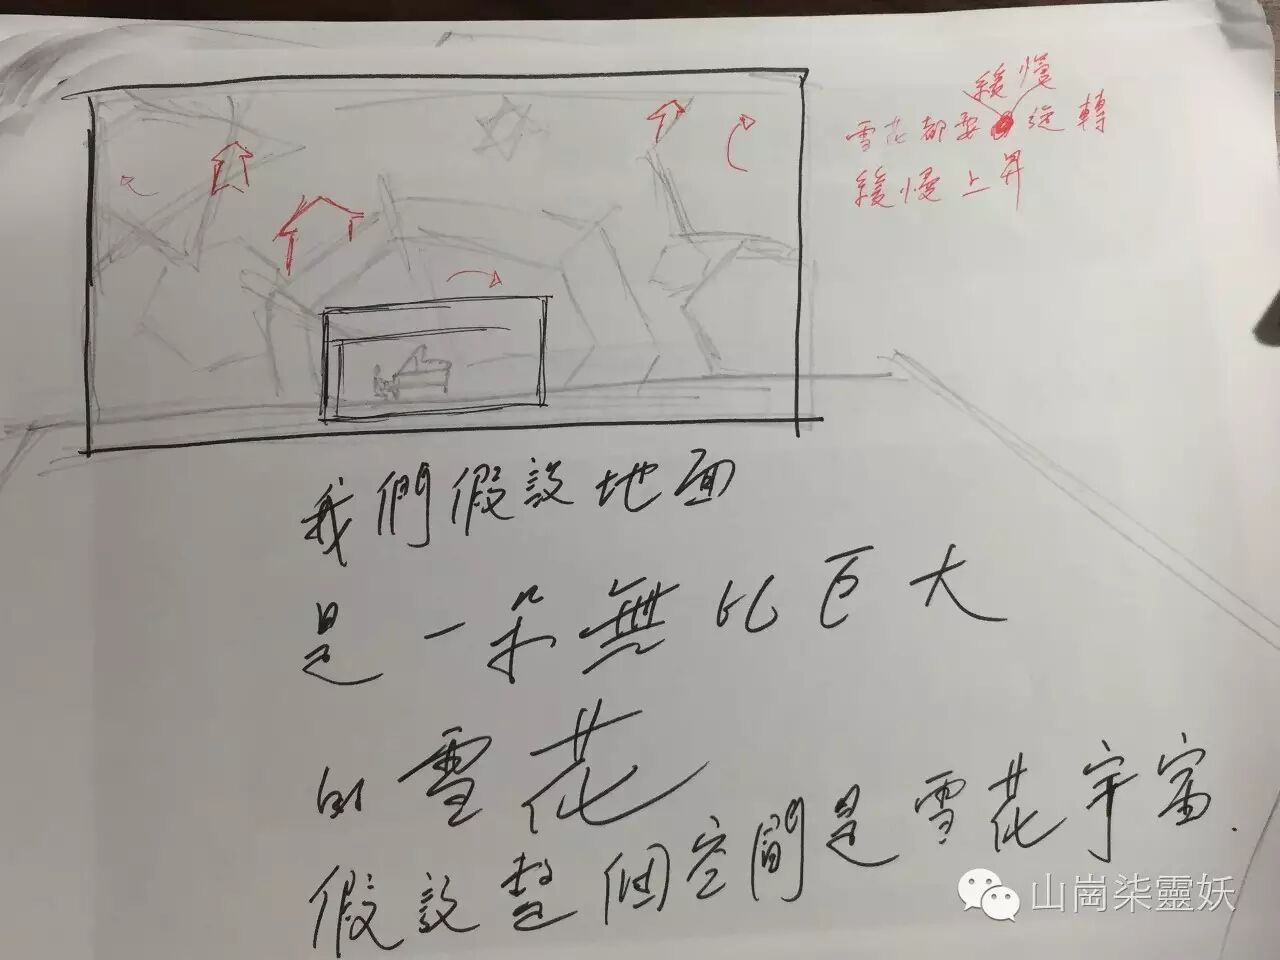 緩慢
雪花都要旋轉
緩慢上昇
我們假設地面
是一朵無比巨大
的雪花
假設整個空間是雪花宇宙.
山崗柒靈妖